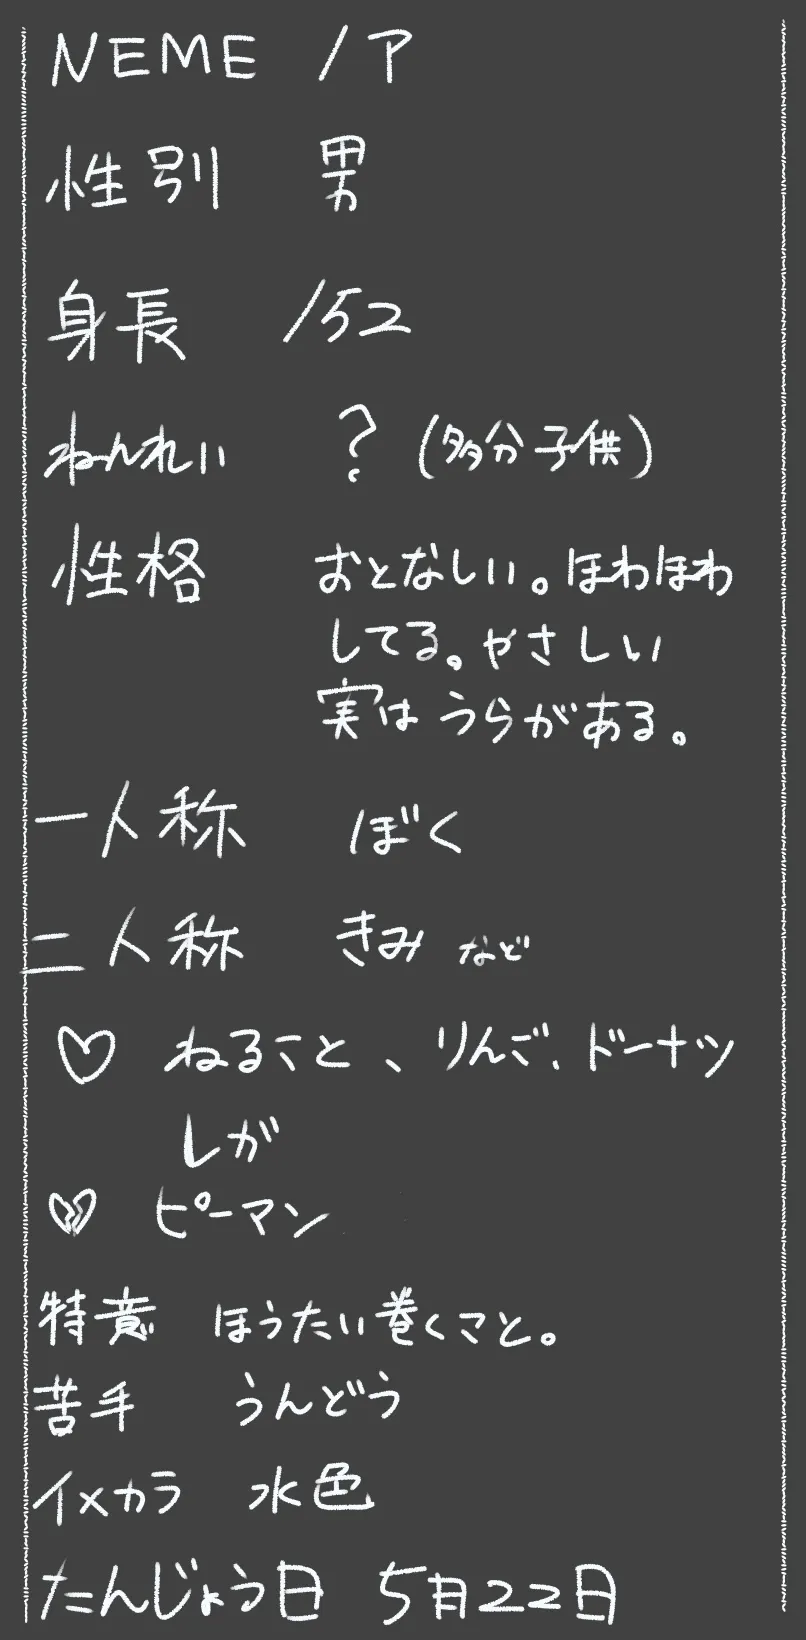 NEME ノア
性別 男
身長 152
ねんれい ? (多分子供)
性格 おとなしい。ほわほわ
してる。やさしい
実は うらがある。
一人称 ぼく
二人称 きみ など
♡ ねること、りんご、ドーナツ
しが
💔 ピーマン
特意 ほうたい巻くこと。
苦手 うんどう
イメカラ 水色
たんじょう日 5月22日